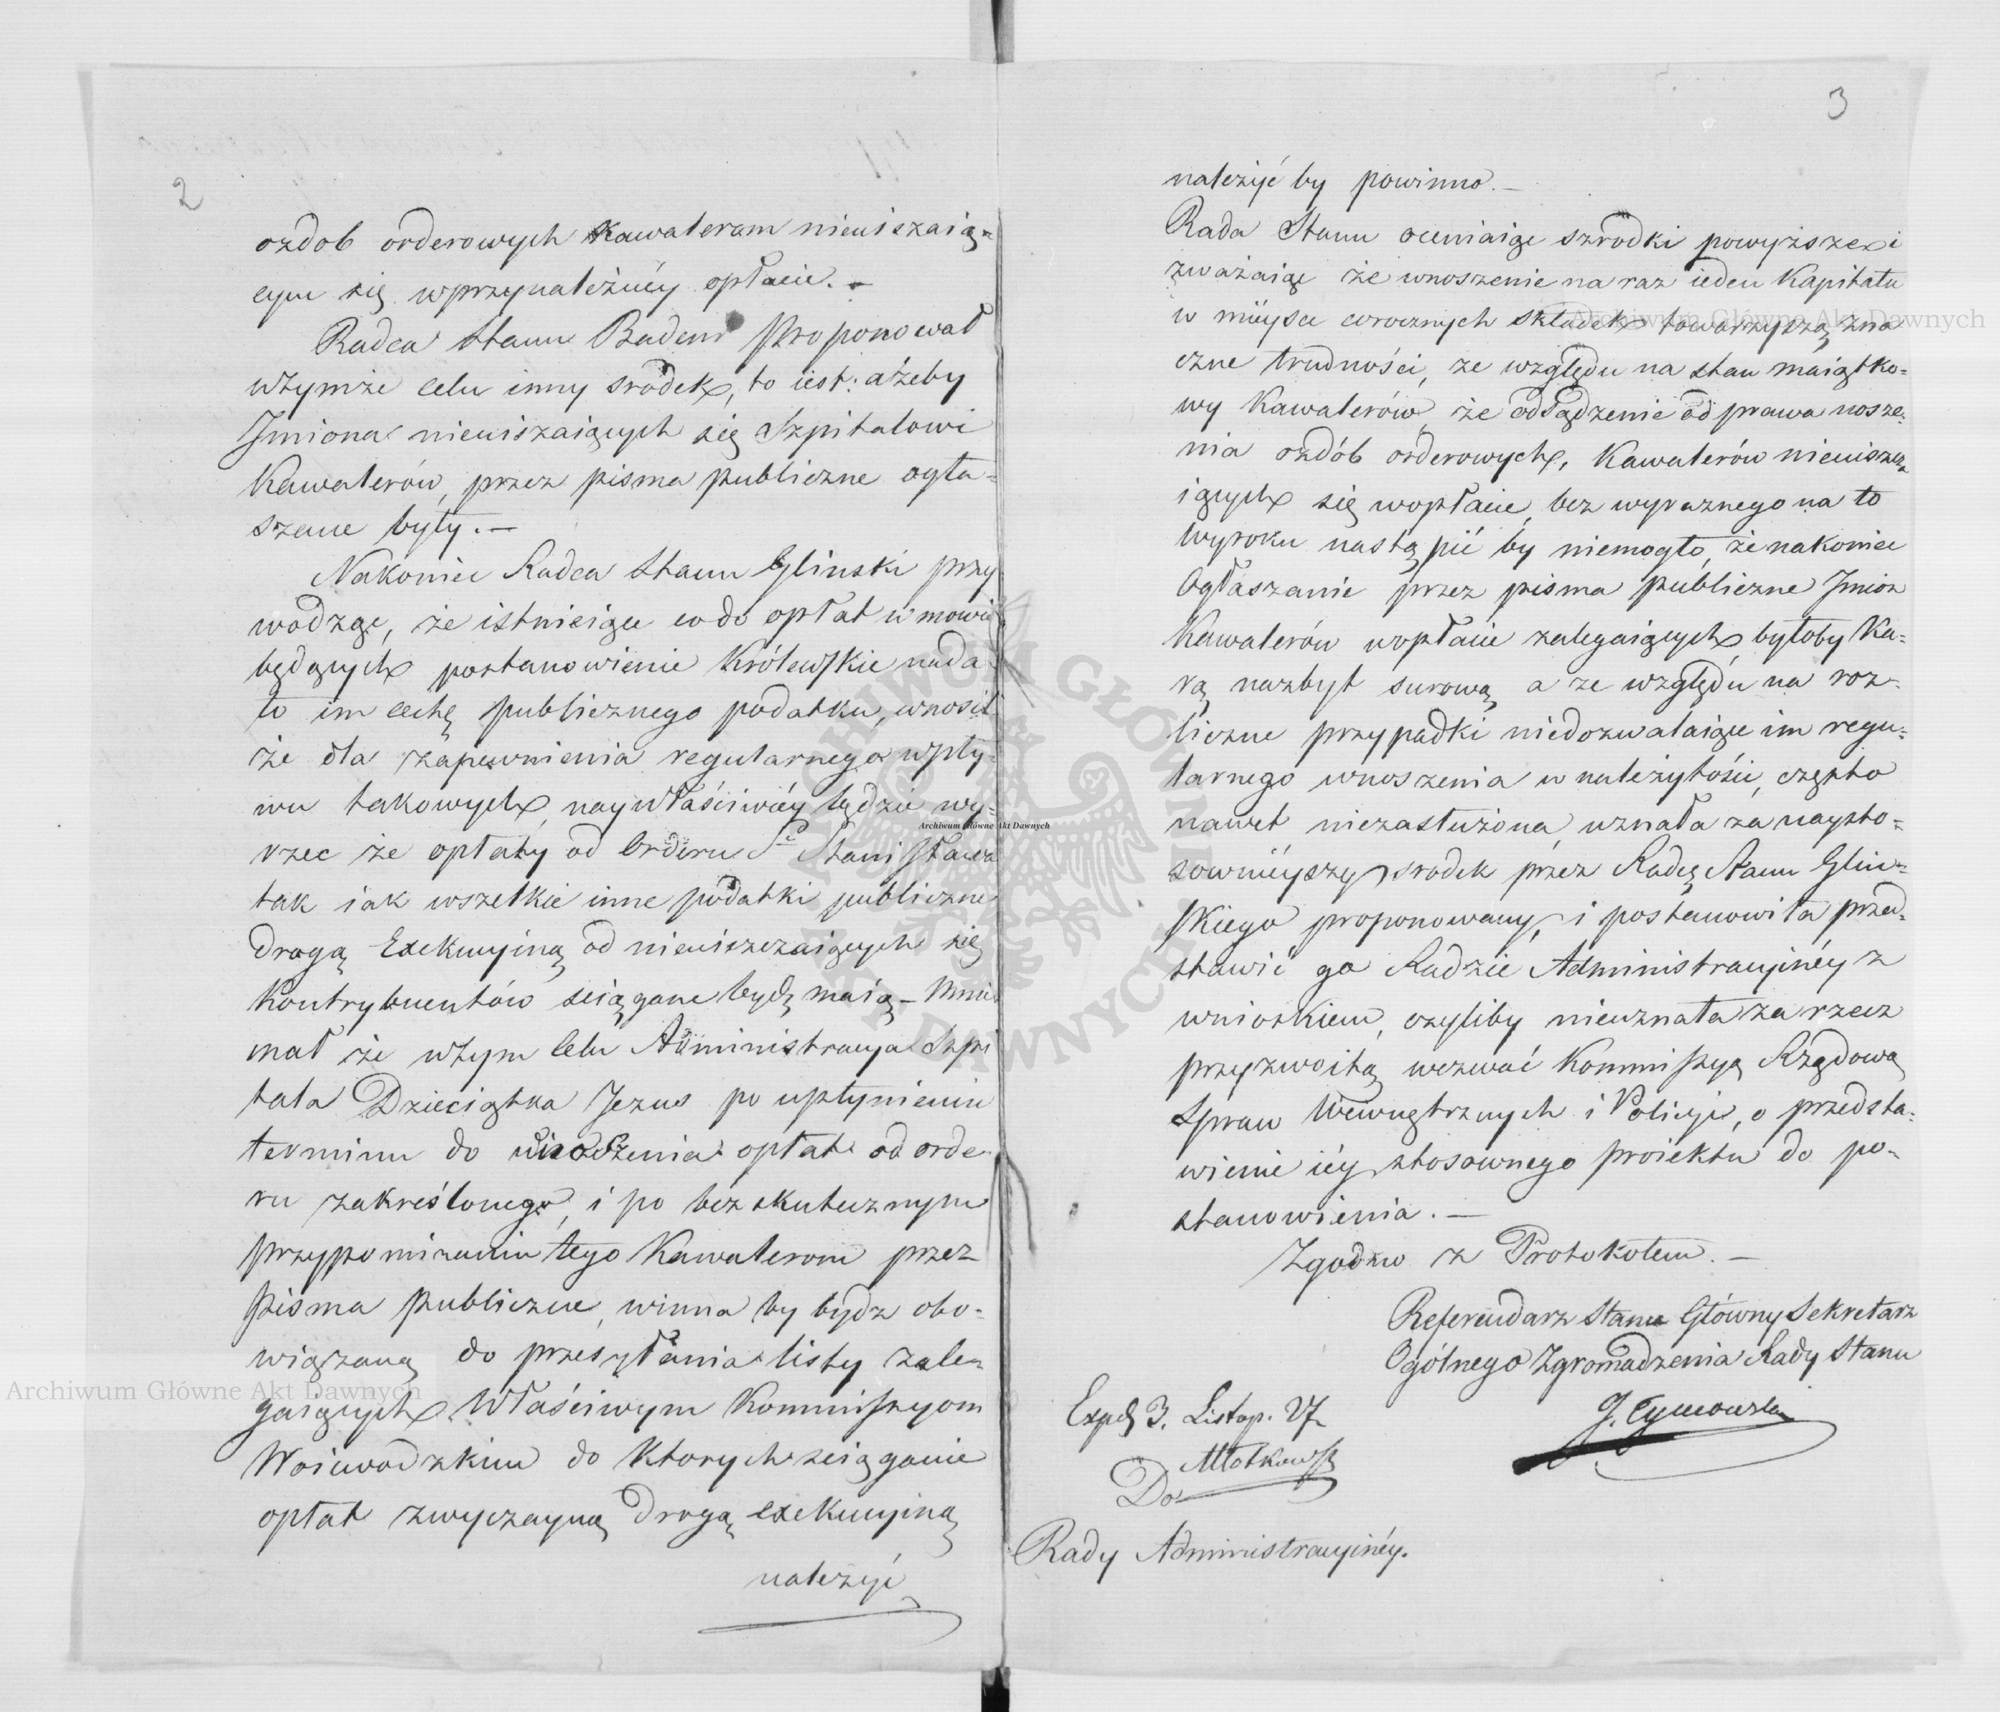 2
ozdob orderowych Kawalerom nieuiszaią-
cym się wprzynależnéy opłacie. –
Radca Stanu Badeni proponował
wtymże celu inny srodek, to iest: ażeby
Jmiona nieuiszaiących się Szpitalowi
Kawalerów, przez pisma publiczne ogła-
szane były. –
Nakoniec Radca Stanu Glinski przy-
wodząc, że istnieiące co do opłat w mowie
będących postanowienie Królewskie nada-
ło im cechę publicznego podatku, wnosił
że dla zapewnienia regularnego wpły-
wu takowych, naywłaściwiéy będzie wy-
rzec że opłaty od Orderu Sgo Stanisława
tak iak wszelkie inne podatki publiczne
drogą Exekucyiną od nieuiszczaiących się
Kontrybuentów sciągane bydź maią – Mnie
mał że wtym Celu Administracya Szpi
tala Dzieciątka Jezus po upłynieniu
terminu do uiszczenia opłat od orde-
ru zakreślonego, i po bezskutecznym
przypominaniu tego Kawalerom przez
pisma publiczne, winna by bydz obo-
wiązaną do przesyłania listy zale-
gaiących Właściwym Kommissyom
Woiewodzkim do Ktorych sciąganie
opłat zwyczayną drogą exekucyiną
należyć
3
należyć by powinno. –
Rada Stanu oceniaiąc szrodki powyższe i
zważaiąc że wnoszenie na raz ieden Kapitału
w mieysce corocznych składek towarzyszą zna
czne trudności, ze względu na stan maiątko-
wy Kawalerów, że odsądzenie od prawa nosze-
nia ozdób orderowych, Kawalerów nieuiszcza-
iących się wopłacie, bez wyraznego na to
Wyroku nastąpić by niemogło, że nakoniec
Ogłaszanie przez pisma publiczne Jmion
Kawalerów wopłacie zalegaiących byłoby Ka-
rą nazbyt surową, a ze względu na roz-
liczne przypadki niedozwalaiące im regu-
larnego wnoszenia w należytości, często
nawet niezasłużoną uznała za naysto-
sownieyszy srodek przez Radcę Stanu Glin-
skiego proponowany, i postanowiła przed-
stawić go Radzie Administracyinéy z
wnioskiem, czyliby nieuznała za rzecz
przyzwoitą wezwać Kommissyą Rządową
Spraw Wewnętrznych i Policyi, o przedsta-
wienie iéy stosownego proiektu do po-
stanowienia. –
Zgodno z Protokołem. –
Referendarz Stanu Główny Sekretarz
Ogólnego Zgromadzenia Rady Stanu
Exped 3. Listop. 27
Do
Rady Administracyinéy.
Archiwum Główne Akt Dawnych
Archiwum Główne Akt Dawnych
Archiwum Główne Akt Dawnych
ARCHIWUM GŁÓWNE AKT DAWNYCH